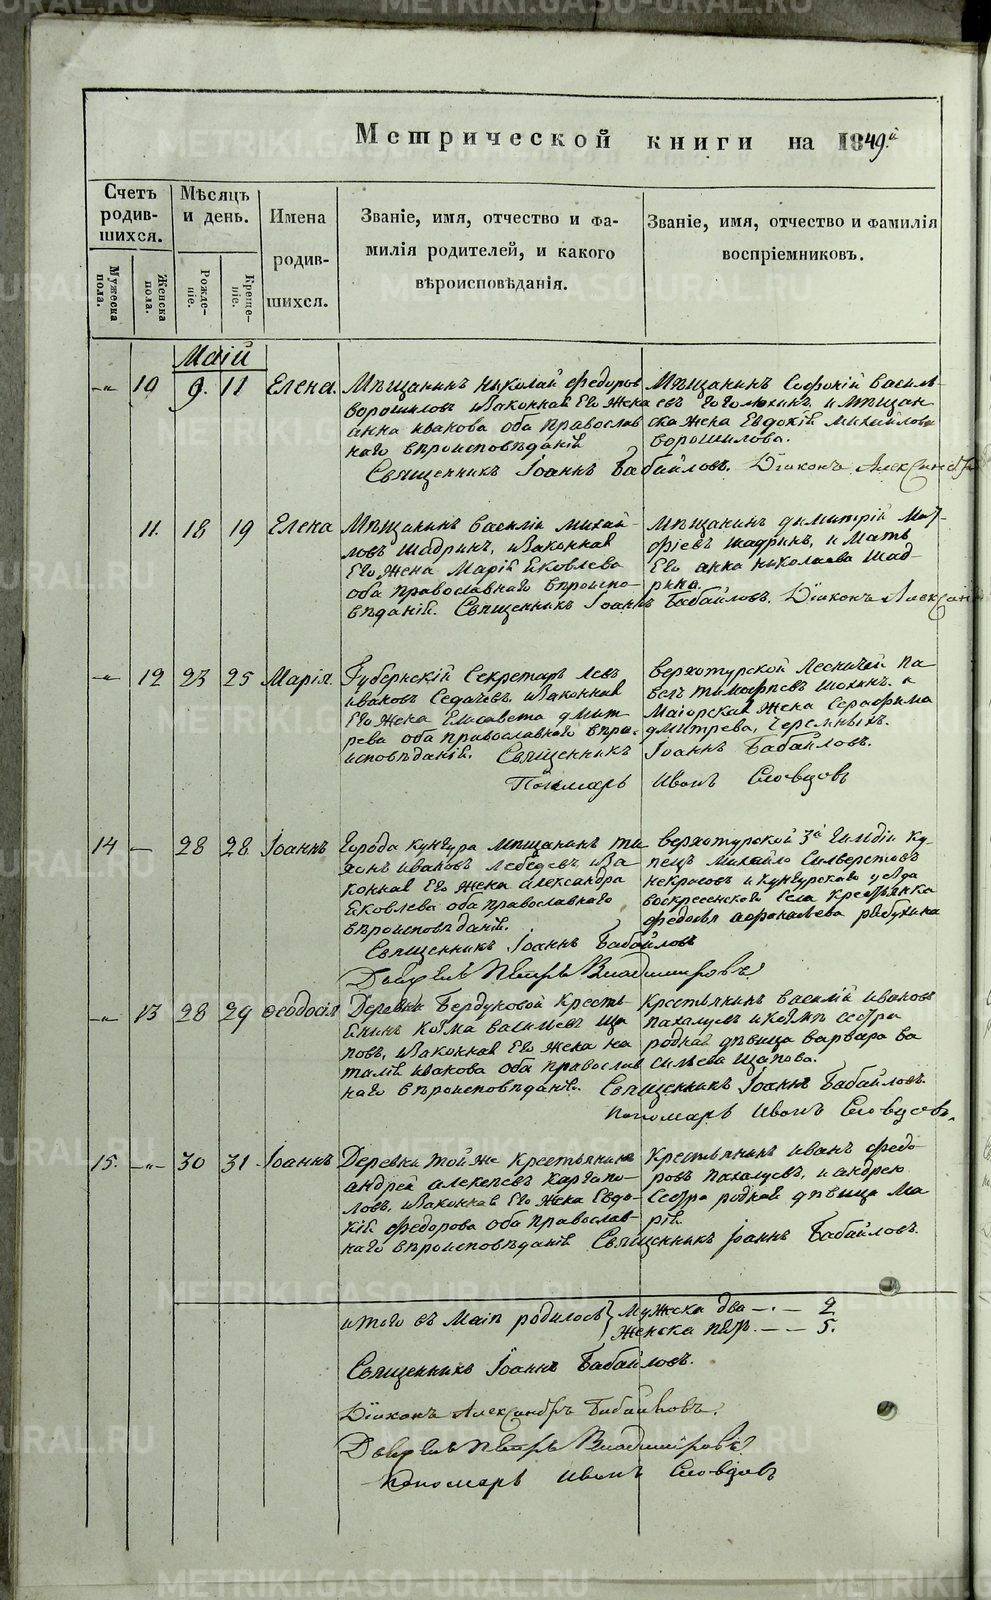 Метрической книги на 1849й
Счетъ родившихся.
Мужеска пола.
Женска пола.
Мѣсяцъ и день.
Рожденіе.
Крещеніе.
Имена родившихся.
Званіе, имя, отчество и фамилія родителей, и какого вѣроисповѣданія.
Званіе, имя, отчество и фамилія воспріемниковъ.
Маій
10 9. 11 Елена.
Мѣщанинъ Николай Федоров
Ворошилов и законная его жена
Анна Иванова оба православ
наго вѣроисповѣданій
Мѣщанинъ Софоній Василь-
евъ и мѣщан
ска жена Евдокій Михайлова
Ворошилова.
Священникъ Іоаннъ Бабайловъ. Діаконъ Александръ
11. 18 19 Елена
Мѣщанинъ Василій Михай-
ловъ Шадринъ, и законная
его жена Марій Яковлева
оба православнаго вѣроиспо-
вѣданій.
Мѣщанинъ Димитрій Мат-
фіевъ Шадринъ, и мать
его Анна Николаева Шад-
рина.
Священникъ Іоаннъ Бабайловъ. Діаконъ Александ
12 23 25 Марія.
Губернскій Секретарь Левъ
Ивановъ Седачевъ, и законная
его жена Елисавета Дмит-
рева оба православнаго вѣро-
исповѣданій.
Верхотурской Лесничей Па
велъ Тимофѣевъ и
Маіорская жена Серафима
Дмитрева, Черемныхъ.
Священникъ Іоаннъ Бабайловъ.
Пономарь Иванъ Словцовъ
14 — 28 28 Іоаннъ
Города Кунгура мѣщанинъ Ти
хонъ Ивановъ Лебедевъ и за
конная его жена Александра
Яковлева оба православнаго
вѣроисповѣданій.
Верхотурской 3й Гильдіи ку-
пецъ Михайло Силверстовъ
Некрасовъ и Кунгурскаго уѣзда
Воскресенской села крестьянка
Федосья Афонасьева Рябухина
Священникъ Іоаннъ Бабайловъ
Дьячекъ Петръ Владимировъ
13 28 29 Феодосія
Деревни Бердуковой кресть
янинъ Козма Васильевъ Ща
повъ, и законная его жена На
талія Иванова оба православ
наго вѣроисповѣданія.
Крестьянинъ Василій Ивановъ
Пахалуевъ и Козмы сестра
родная дѣвица Варвара Ва
сильева Щапова.
Священникъ Іоаннъ Бабайловъ.
Пономарь Иванъ Словцовъ.
15. 30 31 Іоаннъ
Деревни той же крестьянинъ
Андрей Алексѣевъ Каргапо-
ловъ, и законная его жена Евдо-
кія Федорова оба православ-
наго вѣроисповѣданій
Крестьянинъ Иванъ Федо-
ровъ Пахалуевъ, и Андрею
сестра родная дѣвица Ма
рія.
Священникъ Іоаннъ Бабайловъ.
итого въ Маіѣ родилось Мужеска два — 2
Женска пять — 5.
Священникъ Іоаннъ Бабайловъ.
Діаконъ Александръ Бабайловъ.
Дьячекъ Петръ Владимировъ
Пономарь Иванъ Словцовъ
METRIKI.GASO-URAL.RU